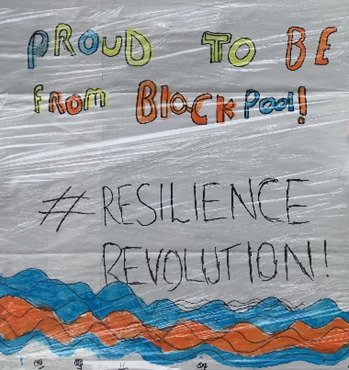 PROUD TO BE
FROM BlacKPool!
#RESILIENCE
REVOLUTION!